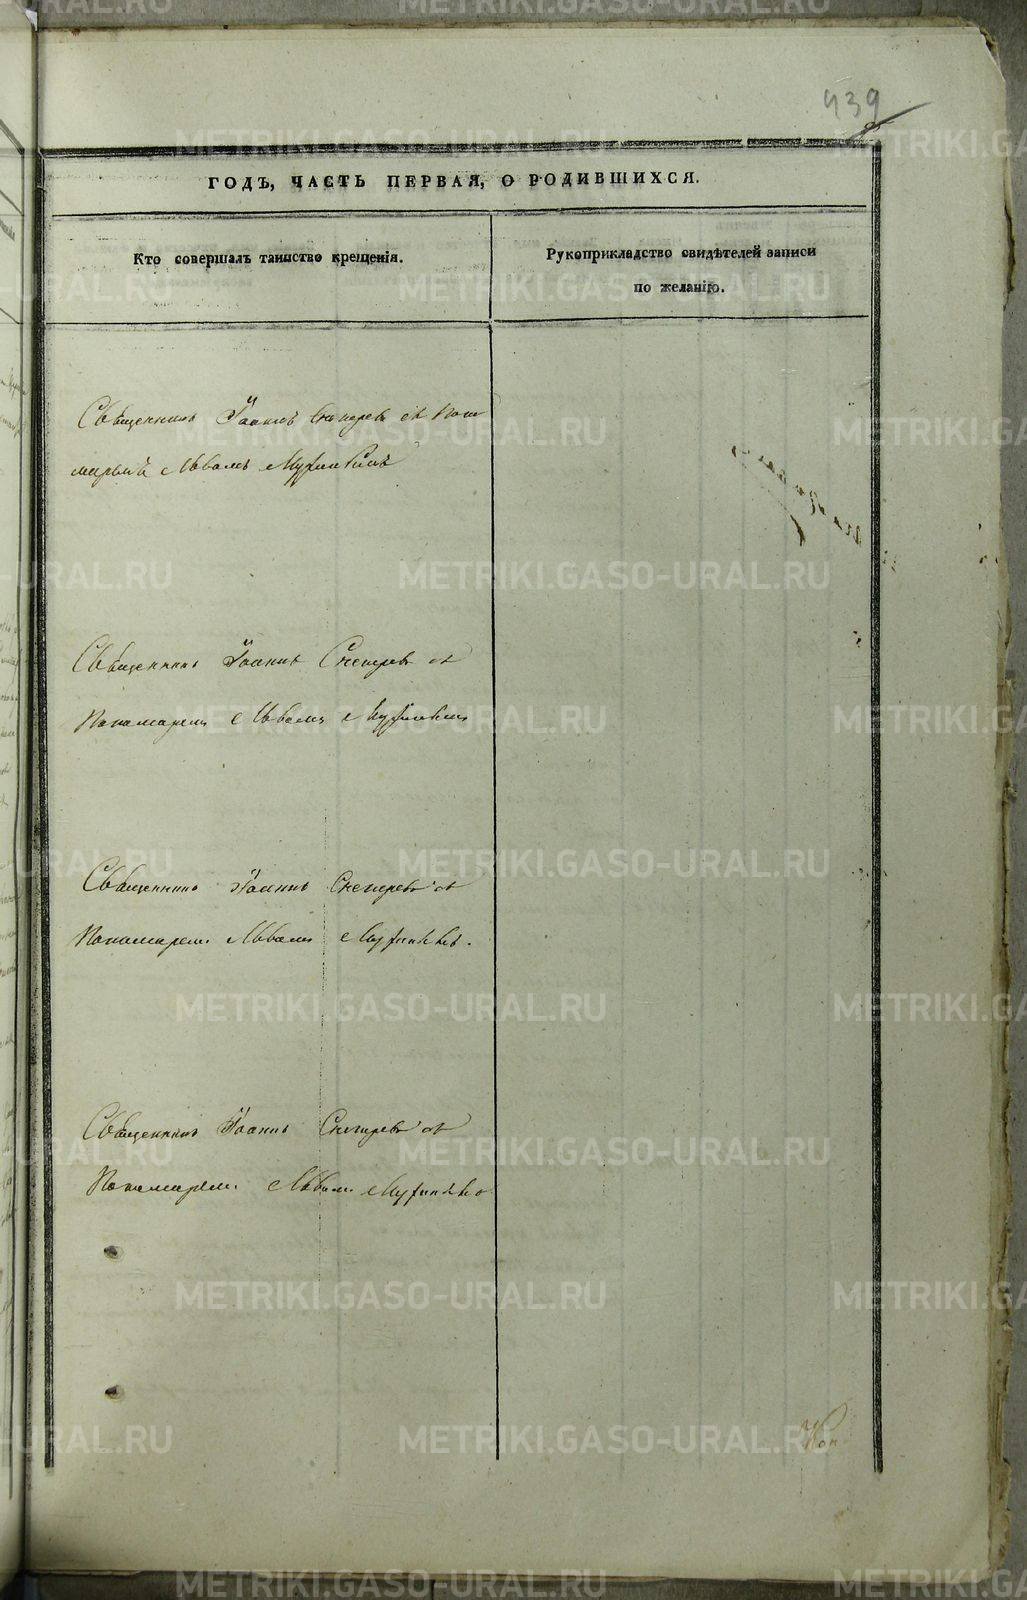 439
ГОДЪ, ЧАСТЬ ПЕРВАЯ, О РОДИВШИХСЯ.
Кто совершалъ таинство крещенія.
Рукоприкладство свидѣтелей записи
по желанію.
Священникъ Іоаннъ Снегирев съ Поно
маремъ Львомъ
Священникъ Іоаннъ Снегирев съ
Пономаремъ Львомъ
Священникъ Іоаннъ Снегирев съ
Пономаремъ Львомъ
Священникъ Іоаннъ Снегирев съ
Пономаремъ Львомъ
METRIKI.GASO-URAL.RU